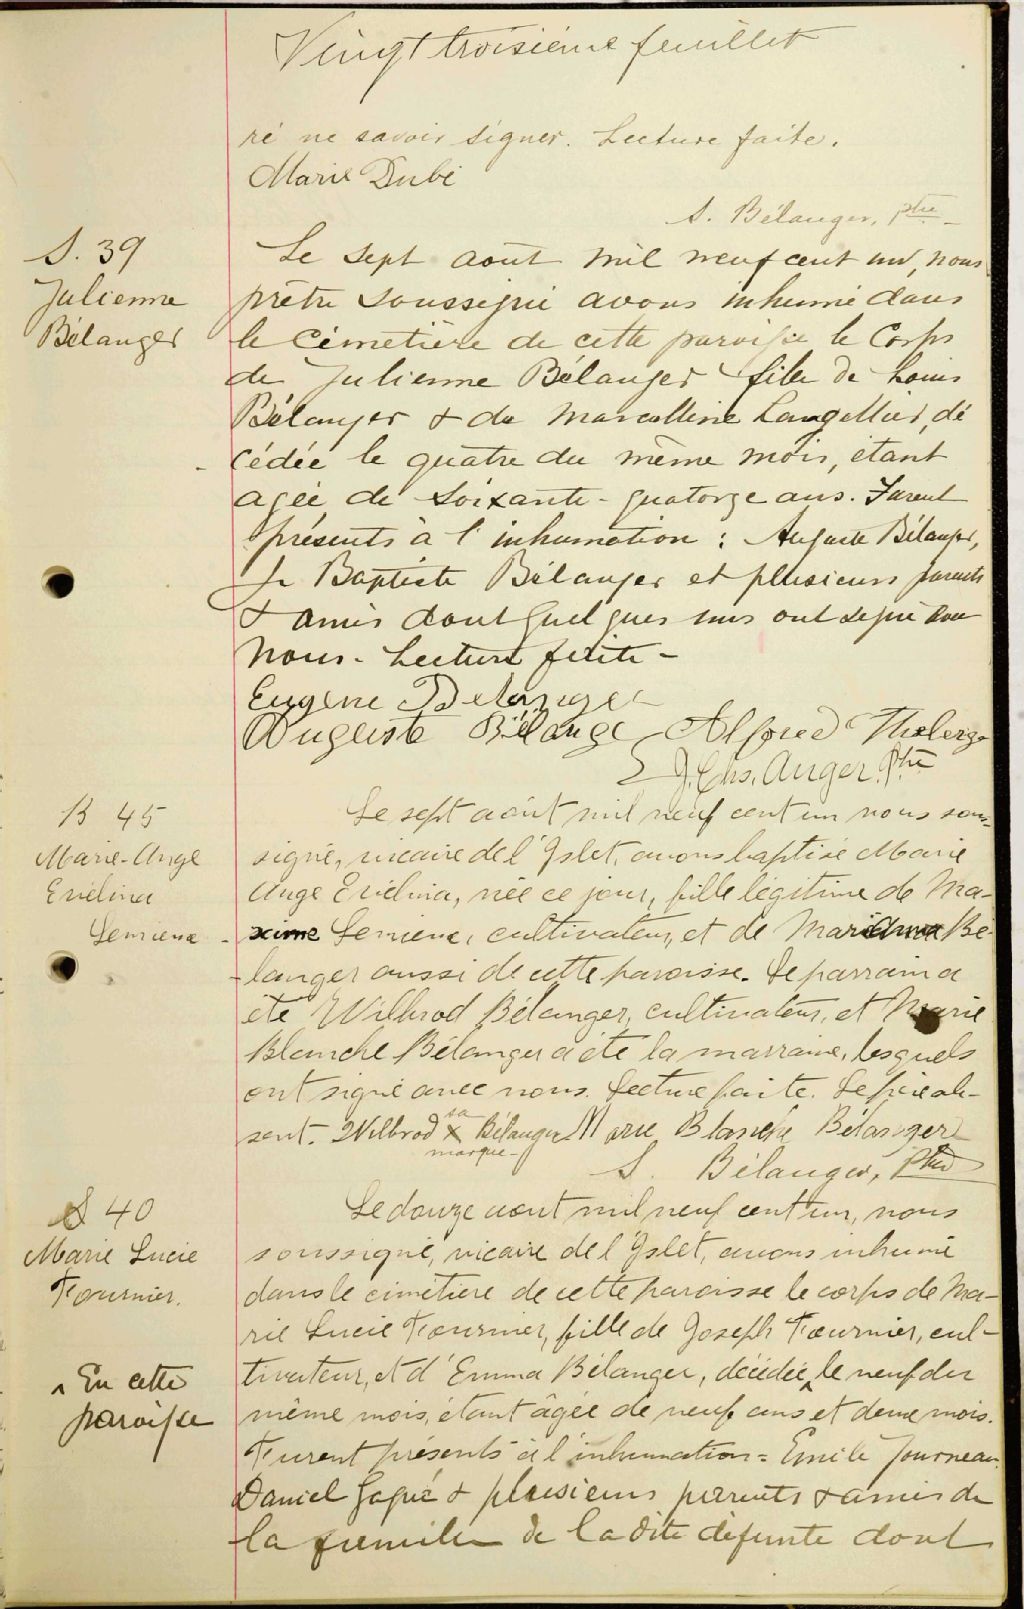 Vingt troisième feuillet
ré ne savoir signer. Lecture faite.
Marie Dubé
S. Bélanger, ptre
S. 39
Julienne
Bélanger
Le sept aout mil neuf cent un, nous
prêtre soussigné avons inhumé dans
le cémetière de cette paroisse le Corps
de Julienne Bélanger fille de Louis
Bélanger & de Marcelline Langellier, dé
cédée le quatre du même mois, étant
agée de soixante-quatorze ans. Furent
présents à l'inhumation : Auguste Bélanger,
Jn Baptiste Bélanger et plusieurs parents
& amis dont quelques uns ont signé avec
nous. Lecture faite -
Eugène Bélanger
Auguste Bélanger Alfred Theberge
J. Chs. Anger Ptre
B 45
Marie-Ange
Evélina
Lemieux
Le sept août mil neuf cent un nous sous-
signé, vicaire de l'Islet, avons baptisé Marie
Ange Evélina, née ce jour, fille légitime de Ma-
xime Lemieux, cultivateur, et de Marianna Bé-
langer aussi de cette paroisse. Le parrain a
été Wilbrod Bélanger, cultivateur, et Marie
Blanche Bélanger a été la marraine, lesquels
ont signé avec nous. Lecture faite. Le père ab-
sent. Wilbrod sa x marque Bélanger Marie Blanche Bélanger
S. Bélanger, Ptre
S 40
Marie Lucie
Fournier.
Le douze aout mil neuf cent un, nous
soussigné, vicaire de l'Islet, avons inhumé
dans le cimetière de cette paroisse le corps de Ma-
rie Lucie Fournier, fille de Joseph Fournier, cul-
tivateur, et d'Emma Bélanger, décédée ^ le neuf du
^ En cette
paroisse
même mois, étant âgée de neuf ans et demi mois.
Furent présents à l'inhumation = Emile Journeau
Daniel Gagné & plusieurs parents & amis de
la famille de la dite défunte dont